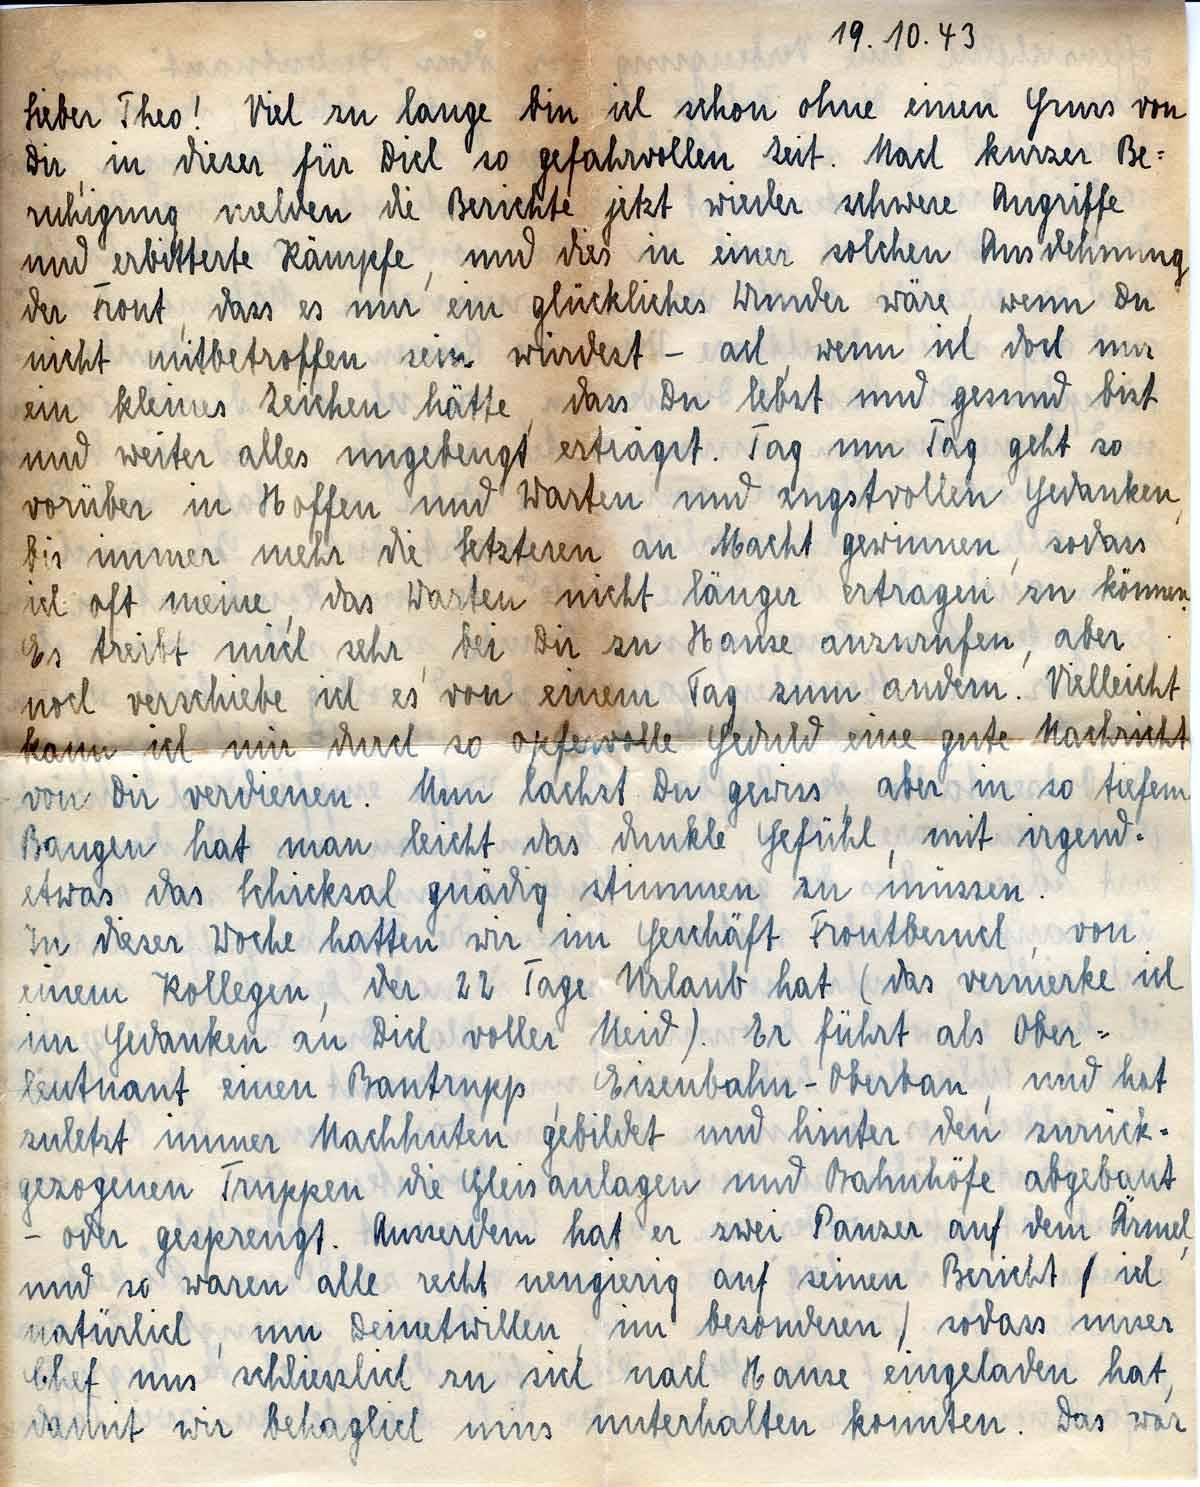 19. 10. 43
Lieber Theo! Viel zu lange bin ich schon ohne einen Gruss von
Dir, in dieser für Dich so gefahrvollen Zeit. Nach kurzer Be=
ruhigung melden die Berichte jetzt wieder schwere Angriffe
und erbitterte Kämpfe, und dies in einer solchen Ausdehnung
der Front, dass es nur ein glückliches Wunder wäre, wenn Du
nicht mitbetroffen sein würdest – ach, wenn ich doch nur
ein kleines Zeichen hätte, dass Du lebst und gesund bist
und weiter alles ungebeugt erträgst. Tag um Tag geht so
vorüber in Hoffen und Warten und angstvollen Gedanken,
bis immer mehr die Letzteren an Macht gewinnen, sodass
ich oft meine, das Warten nicht länger ertragen zu können.
Es treibt mich sehr, bei Dir zu Hause anzurufen, aber
noch verschiebe ich es von einem Tag zum andern. Vielleicht
kann ich mir durch so opfervolle Geduld eine gute Nachricht
von Dir verdienen. Nun lachst Du gewiss, aber in so tiefem
Bangen hat man leicht das dunkle Gefühl, mit irgend-
etwas das Schicksal gnädig stimmen zu müssen.
In dieser Woche hatten wir im Geschäft Frontbesuch, von
einem Kollegen, der 22 Tage Urlaub hat (das vermerke ich
im Gedanken an Dich voller Neid). Er führt als Ober=
leutnant einen Bautrupp, Eisenbahn-Oberbau, und hat
zuletzt immer Nachhuten gebildet und hinter den zurück-
gezogenen Truppen die Gleisanlagen und Bahnhöfe abgebaut
– oder gesprengt. Ausserdem hat er zwei Panzer auf dem Ärmel,
und so waren alle recht neugierig auf seinen Bericht / ich
natürlich, um Deinetwillen, im besonderen / sodass unser
Chef uns schliesslich zu sich nach Hause eingeladen hat,
damit wir behaglich uns unterhalten konnten. Das war